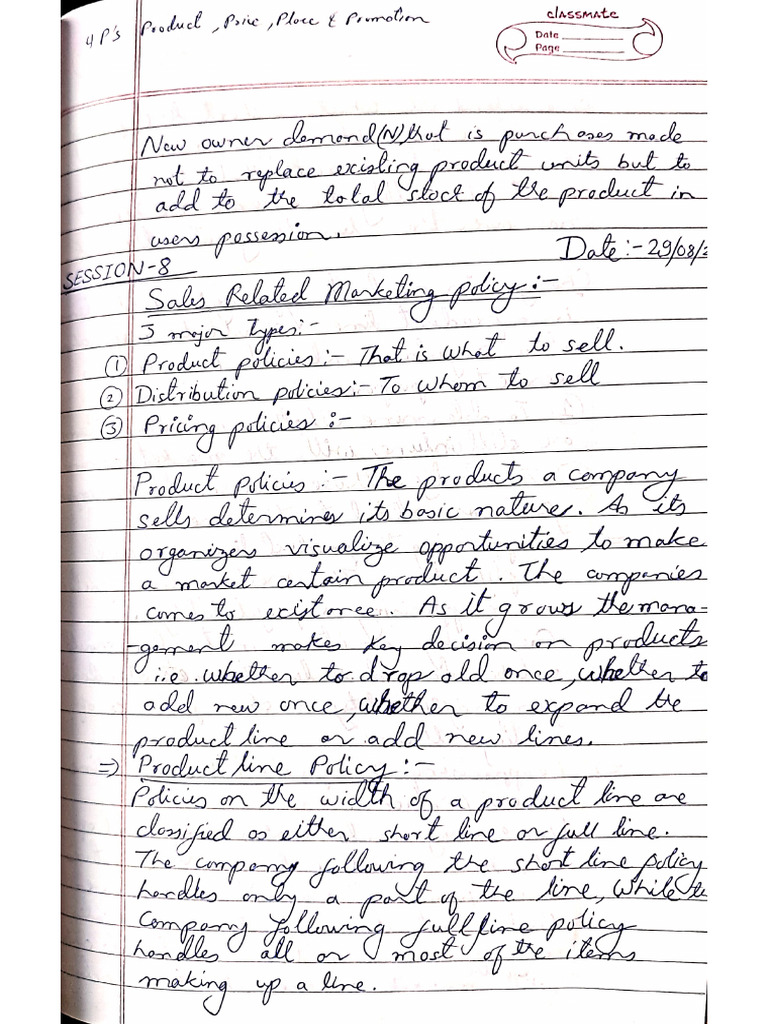 4 P's Product, Price, Place & Promotion
classmate
Date
Page
New owner demand(N) that is purchases made
not to replace existing product units but to
add to the total stock of the product in
users possession.
Date:- 29/08/2
SESSION-8
Sales Related Marketing policy:-
3 major types:-
① Product policies:- That is what to sell.
② Distribution policies:- To whom to sell
③ Pricing policies:-
Product policies:- The products a company
sells determines its basic nature. As its
organizers visualize opportunities to make
a market certain product. The companies
comes to existance. As it grows the mana-
-gement makes key decision on products
i.e. whether to drop old once, whether to
add new once, whether to expand the
product line or add new lines.
⇒ Product line Policy:-
Policies on the width of a product line are
classified as either short line or full line.
The company following the short line policy
handles only a part of the line, while the
Company following full line policy
handles all or most of the items
making up a line.